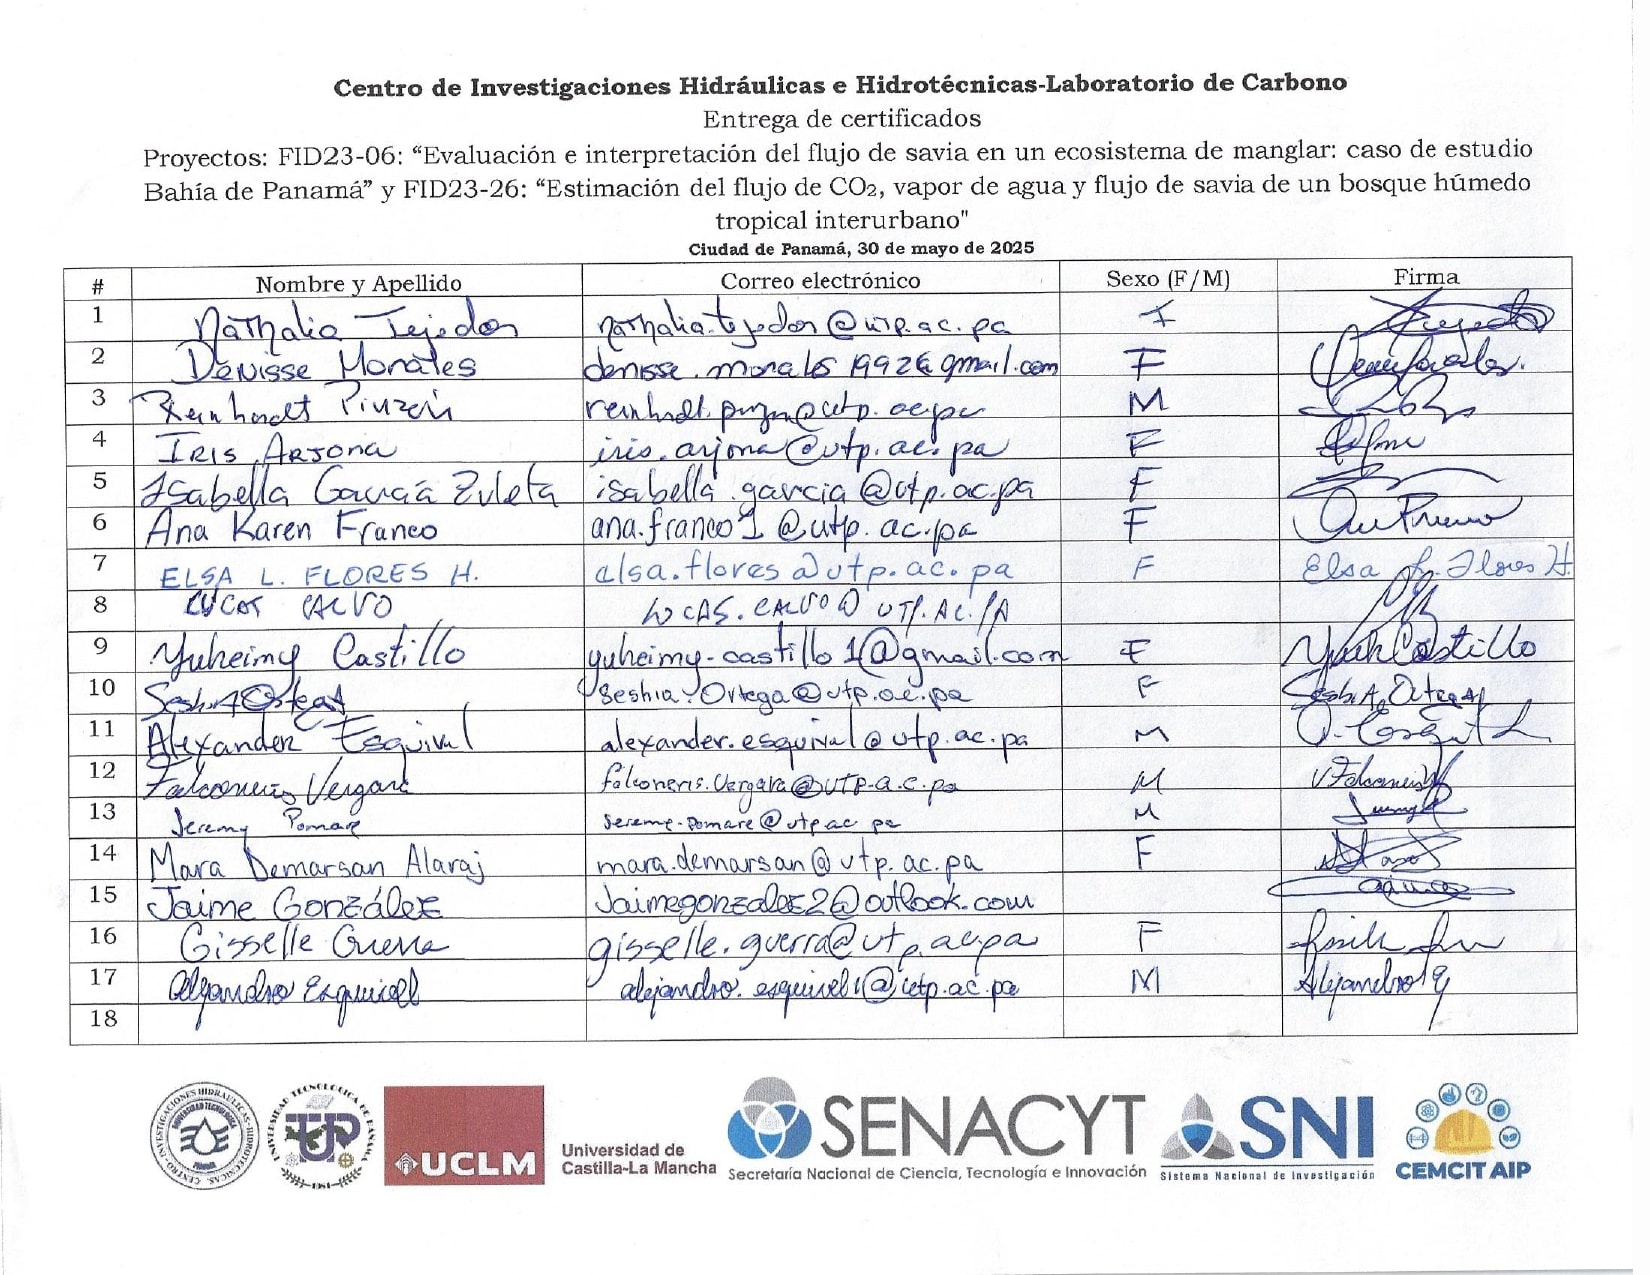 Centro de Investigaciones Hidráulicas e Hidrotécnicas-Laboratorio de Carbono
Entrega de certificados
Proyectos: FID23-06: “Evaluación e interpretación del flujo de savia en un ecosistema de manglar: caso de estudio
Bahía de Panamá” y FID23-26: “Estimación del flujo de CO₂, vapor de agua y flujo de savia de un bosque húmedo
tropical interurbano"
Ciudad de Panamá, 30 de mayo de 2025
# Nombre y Apellido Correo electrónico Sexo (F/M) Firma
1 Nathalia Tejedor nathalia.tejedor@utp.ac.pa F
2 Denisse Morales denisse.morales1992@gmail.com F
3 Reinhardt Pinzón reinhardt.pinzon@utp.ac.pa M
4 IRIS ARJONA iris.arjona@utp.ac.pa F
5 Isabella García Zuleta isabella.garcia@utp.ac.pa F
6 Ana Karen Franco ana.franco1@utp.ac.pa F
7 ELSA L. FLORES H. elsa.flores@utp.ac.pa F Elsa L. Flores H.
8 LUCAS CALVO LUCAS.CALVO@UTP.AC.PA
9 Yuheimy Castillo yuheimy-castillo1@gmail.com F Yuh Castillo
10 Seshia Ortega@utp.ac.pa F
11 Alexander Esquivel alexander.esquivel@utp.ac.pa M
12 Falconeris Vergara falconeris.Vergara@utp.a.c.pa M
13 Jeremy Pomare jeremy.pomare@utp.ac pa M
14 Mara Demarsan Alaraj mara.demarsan@utp.ac.pa F
15 Jaime González Jaimegonzalez2@outlook.com
16 Gisselle Guerra gisselle.guerra@utp.ac.pa F
17 Alejandro Esquivel alejandro.esquivel1@utp.ac.pa M
18
CENTRO DE INVESTIGACIONES HIDRAULICAS E HIDROTECNICAS
UNIVERSIDAD TECNOLOGICA
PANAMA
UNIVERSIDAD TECNOLOGICA DE PANAMA
UTP
1981
UCLM
Universidad de
Castilla-La Mancha
SENACYT
Secretaría Nacional de Ciencia, Tecnología e Innovación
SNI
Sistema Nacional de Investigación
CEMCIT AIP